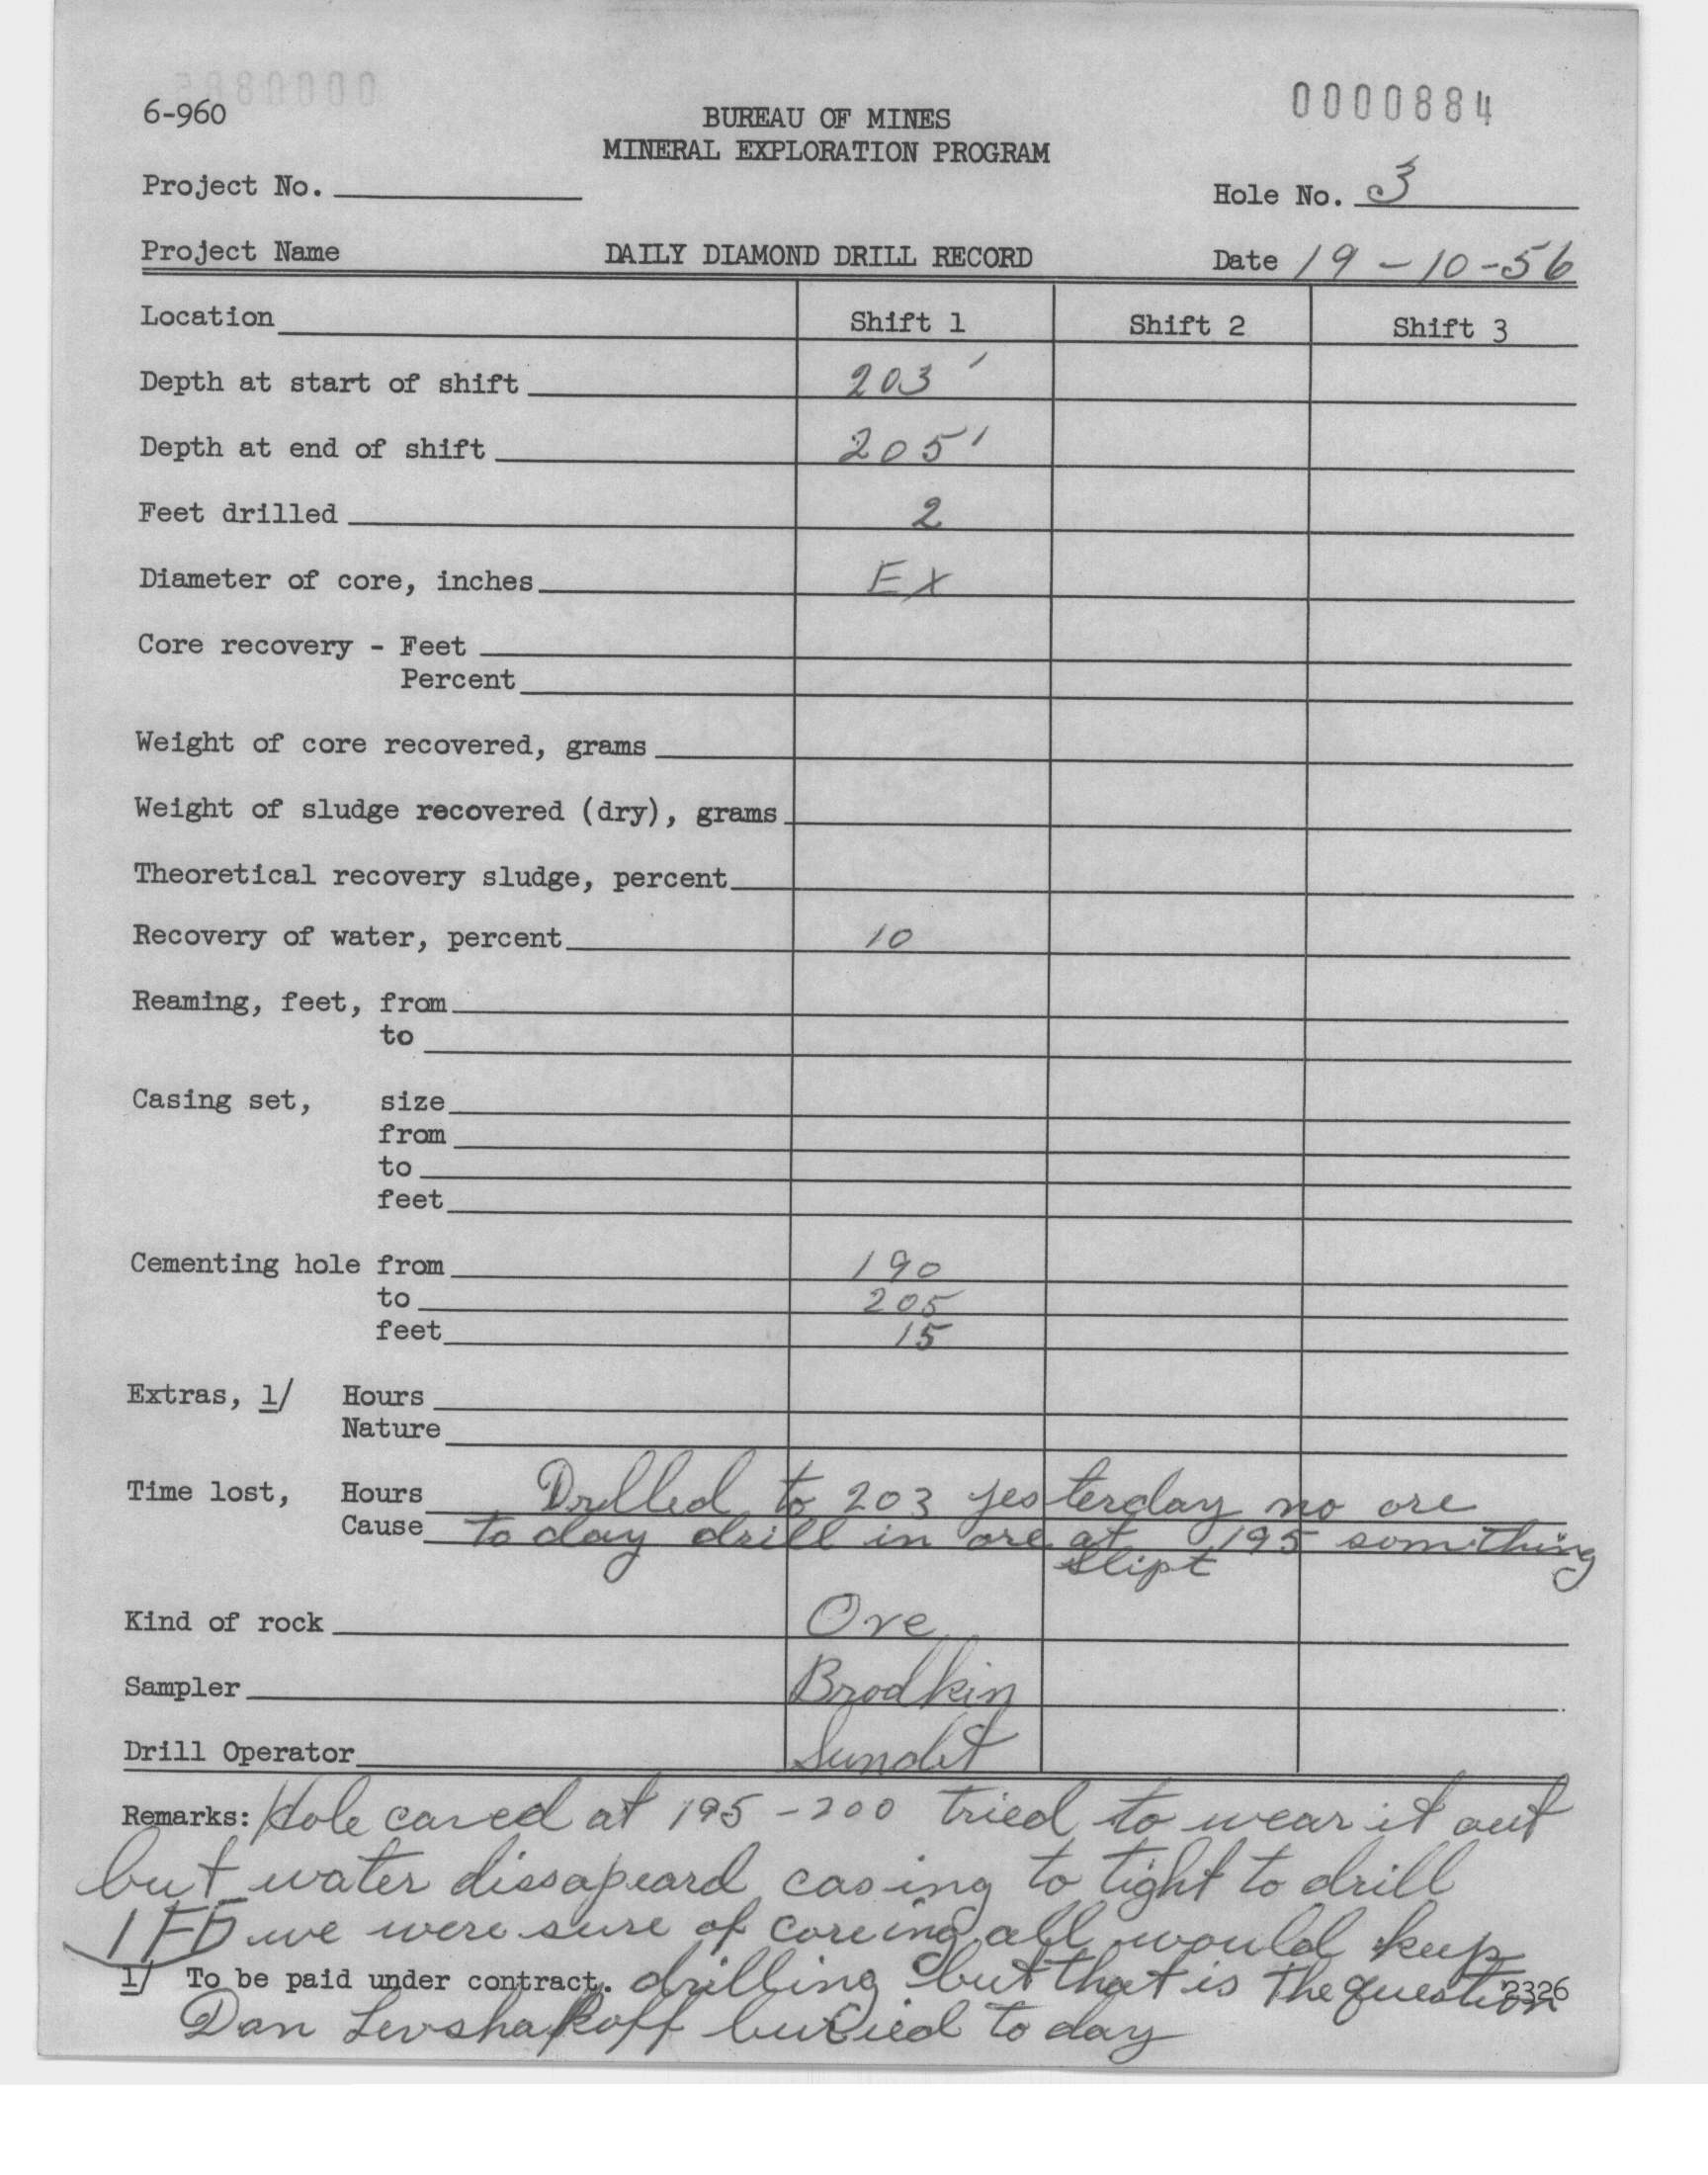 0000884
6-960
BUREAU OF MINES
MINERAL EXPLORATION PROGRAM
Project No.
Hole No. 3
Project Name DAILY DIAMOND DRILL RECORD Date 19-10-56
Location Shift 1 Shift 2 Shift 3
Depth at start of shift 203'
Depth at end of shift 205'
Feet drilled 2
Diameter of core, inches EX
Core recovery - Feet
Percent
Weight of core recovered, grams
Weight of sludge recovered (dry), grams
Theoretical recovery sludge, percent
Recovery of water, percent 10
Reaming, feet, from
to
Casing set, size
from
to
feet
Cementing hole from 190
to 205
feet 15
Extras, 1/ Hours
Nature
Time lost, Hours Drilled to 203 yesterday no ore
Cause to day drill in ore at 195 something
slipt
Kind of rock Ore
Sampler Brodkin
Drill Operator Sundt
Remarks: Hole caved at 195-200 tried to wear it out
but water dissapeard casing to tight to drill
IFF we were sure of coreing all would keep
1/ To be paid under contract. drilling but that is the question 2326
Dan Levshakoff buried to day